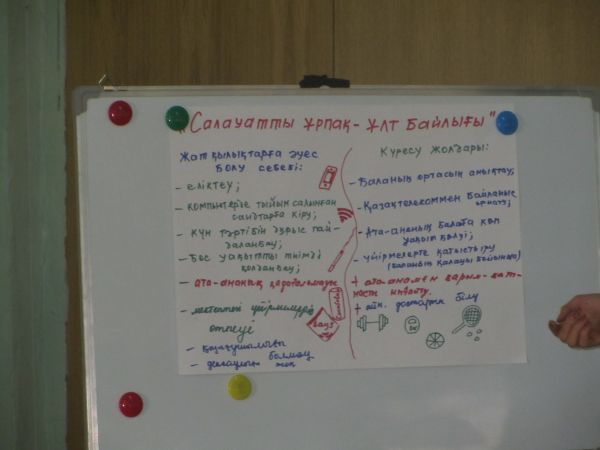 "Салауатты ұрпақ - ұлт байлығы"
Жат қылықтарға әуес
болу себебі:
- еліктеу;
- компьютерде тыйым салынған
сайттарға кіру;
- күн тәртібін дұрыс пай-
даланбау;
- Бос уақытты тиімді
қолданбау;
- ата-ананың қадағаламауы
- мектептегі үйірмелердің
өтпеуі
- қызығушылығы
болмау
- жоқ
Күресу жолдары:
- Баланың ортасын анықтау;
- Қазақтелекоммен байланыс
орнату;
- Ата-ананың балаға көп
уақыт бөлуі;
- үйірмелерге қатыстыру
(баланың қалауы бойынша)
+ ата-анамен қарым-қат-
насты нығайту.
+ айн. достарын білу